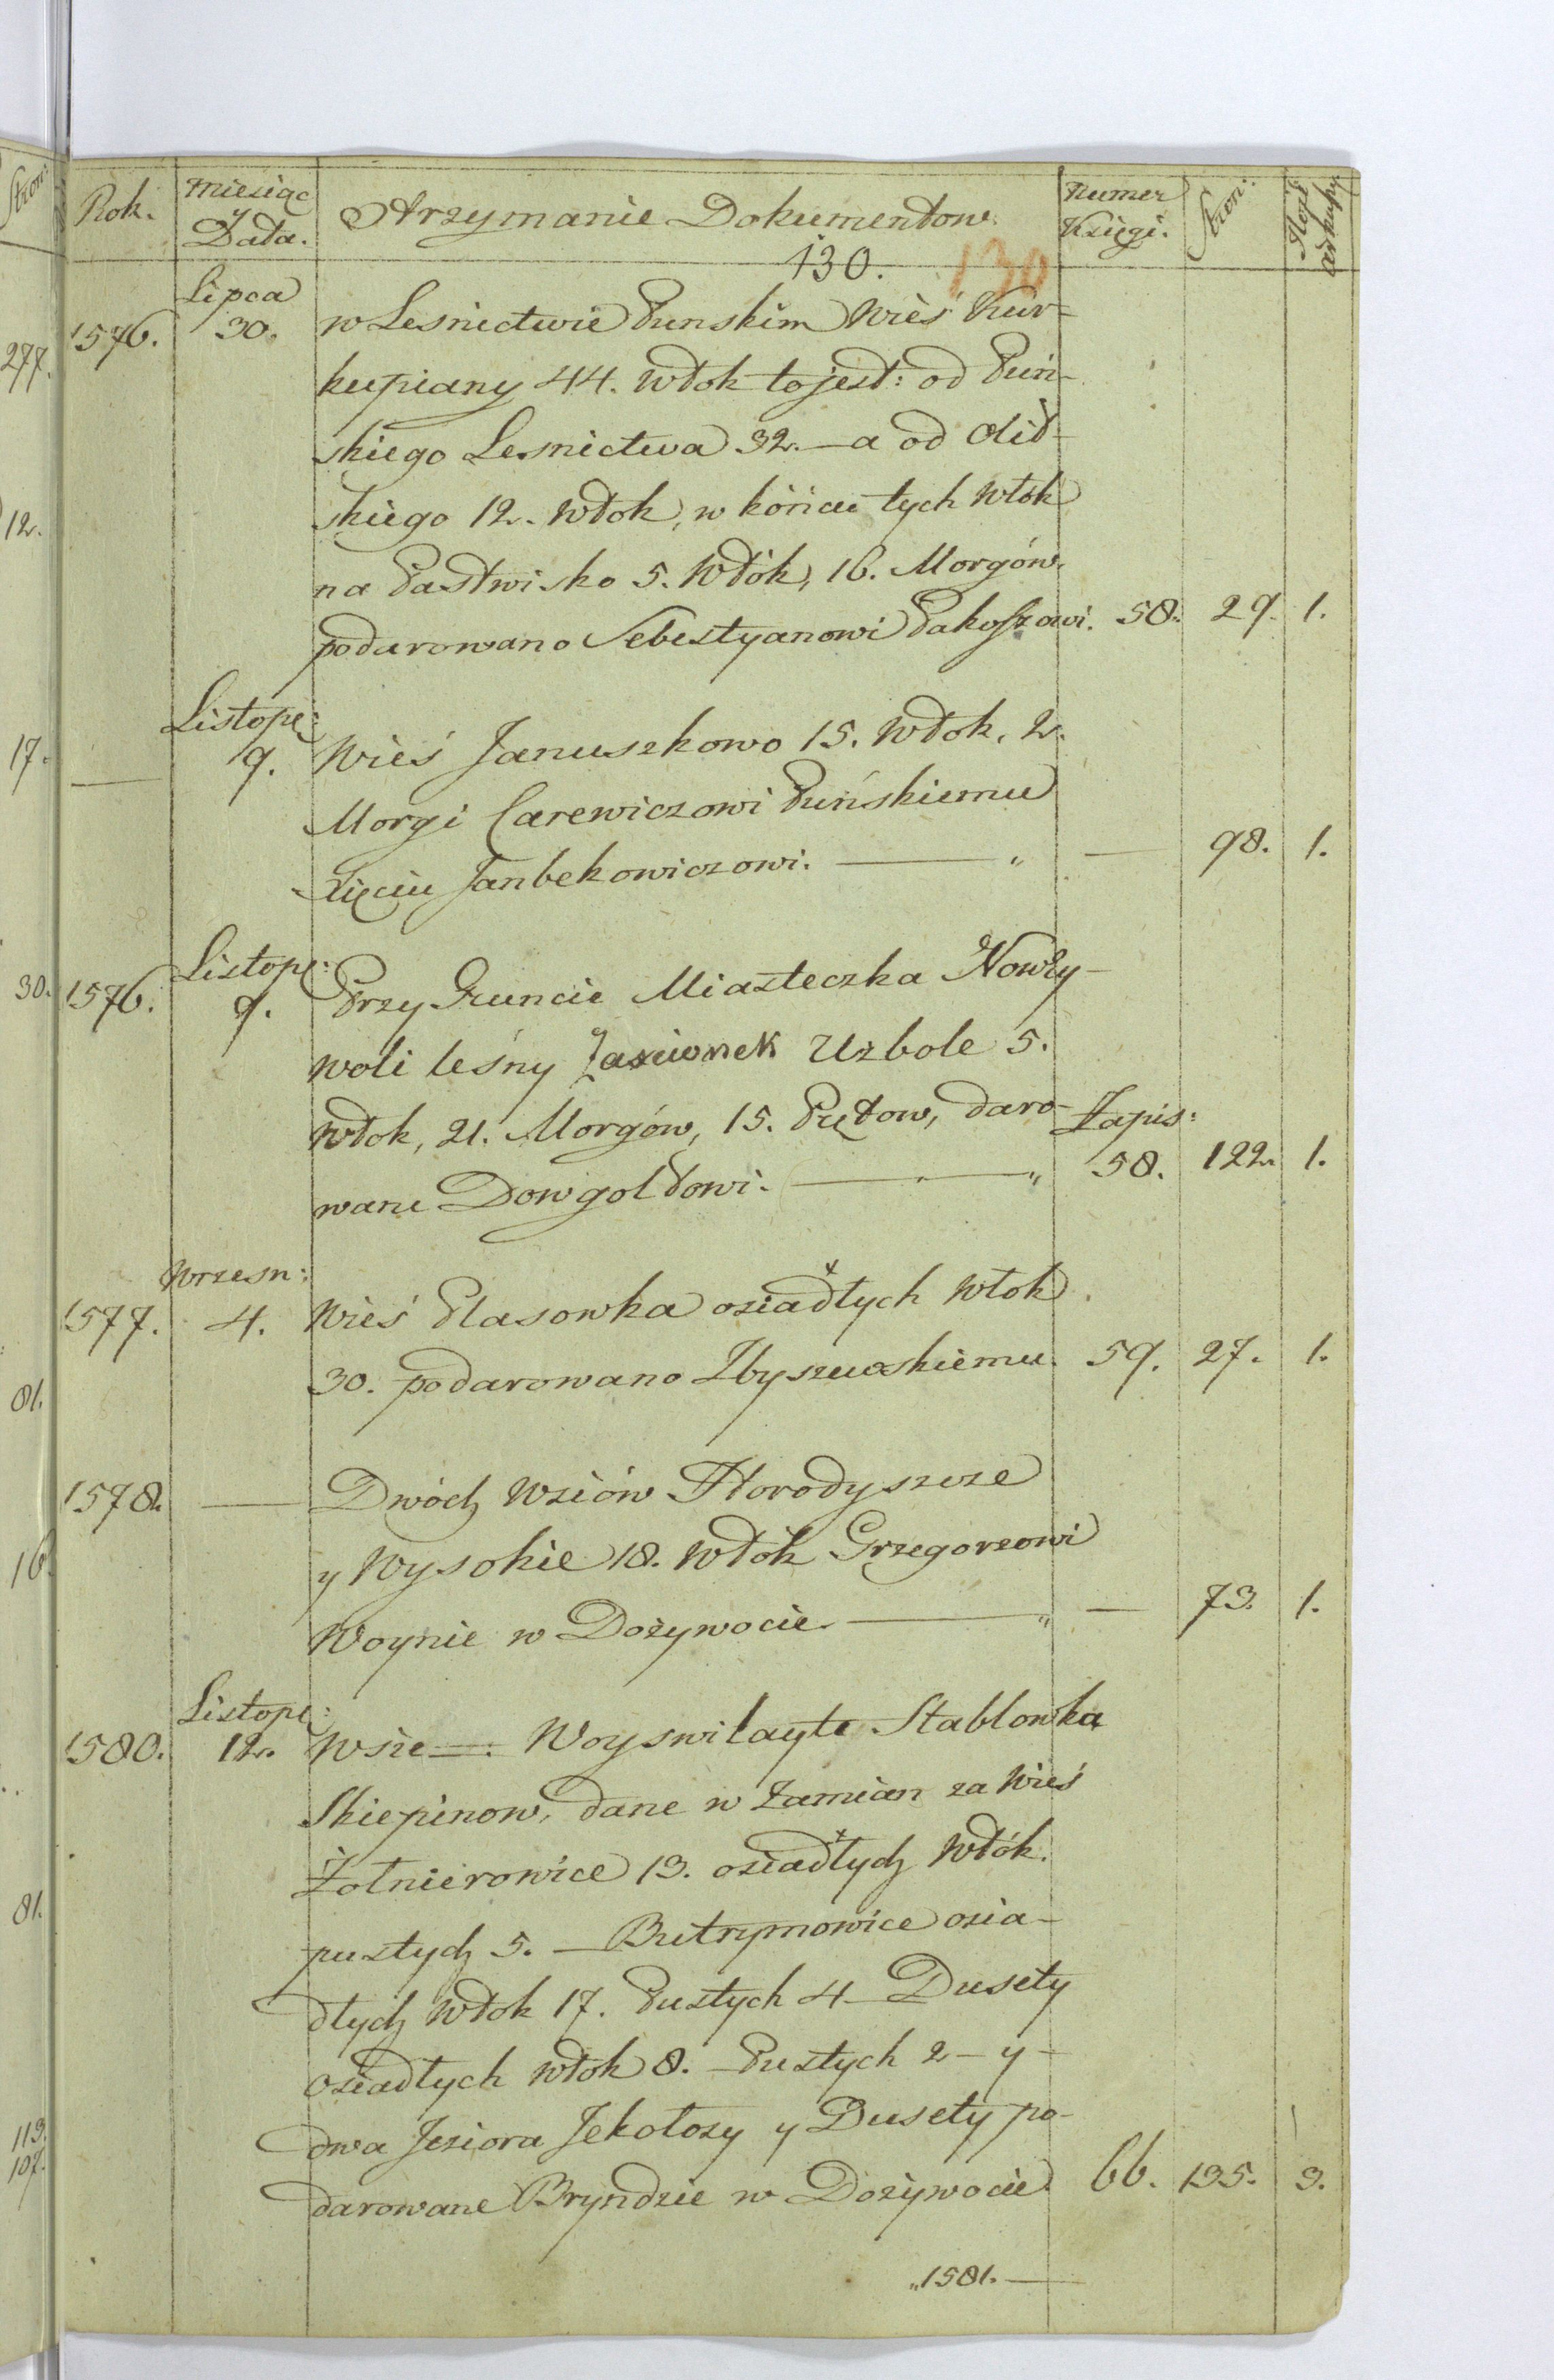 Rok. Miesiąc y Data. Otrzymanie Dokumentow. Numer Księgi. Stron:
130. 130
1576. Lipca 30. w Lesnictwie Punskim Wieś Kur-
kupiany 44. Włok to jest: od Puń-
skiego Lesnictwa 32. — a od Olit-
skiego 12. Włok, w końcu tych Włok
na Pastwisko 5. Włók, 16. Morgów.
podarowano Sebestyanowi Pakoszowi. 58. 29. 1.
— Listopa: 9. Wieś Januszkowo 15. Włok, 2.
Morgi Carewiczowi Puńskiemu
Zięciu Janbekowiczowi. — „ — 98. 1.
1576. Listop: 9. Przy Gruncie Miasteczka Nowey-
woli leśny Zascionek Uzbole 5.
Włok, 21. Morgów, 15. Pętow, daro-
wane Dowgoldowi. — „ Zapis: 58. 122. 1.
1577. Wrzesn: 4. Wieś Plasowka osiadłych Włok
30. podarowano Zbyszewskiemu. 59. 27. 1.
1578. — Dwóch Wsiów Horodyszcze
y Wysokie 18. Włók Grzegorzowi
Woynie w Dożywocie. — „ — 73. 1.
1580. Listop: 12. Wsie —: Woyswilayte Stablowka
Skiepinow, dane w Zamian za Wieś
Żołnierowice 13. osiadłych Włók.
pustych 5. — Butrymowice osia-
dłych Włok 17. Pustych 4 — Dusety
Osiadłych Włok 8. — Pustych 2 — y —
dwa Jeziora Jekołosy y Dusety po-
darowane Bryndzie w Dożywocie 66. 135. 3.
„1581. —
277.
12.
17.
30.
81.
16.
81.
113.
107.